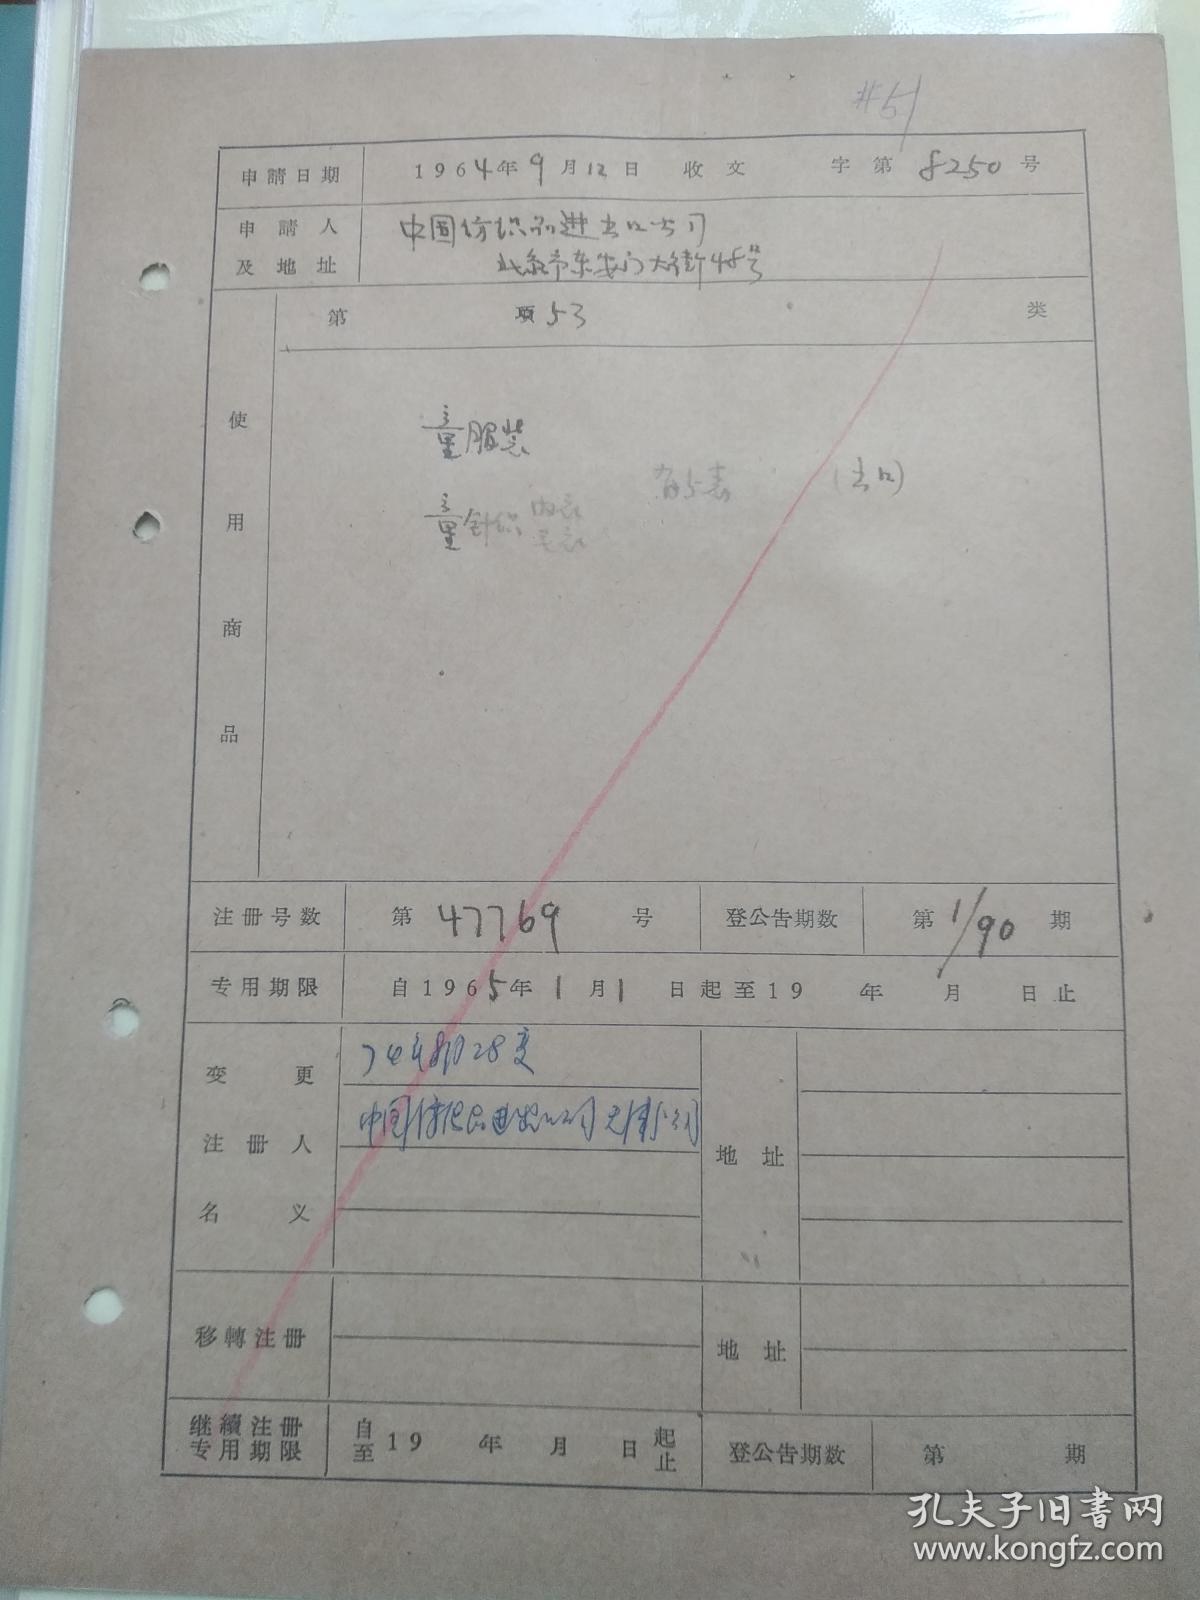 #51
申請日期 1964年9月12日 收文 字第8250号
申請人 中国纺织品进出口公司
及地址 北京市东安门大街48号
第 項53 类
使用商品
童服装
(出口)
童针织 内衣
毛衣
注册号数 第47769号 登公告期数 第1/90期
专用期限 自1965年1月1日起至19 年 月 日止
变更 74年8月28变
注册人 中国纺织品进出口公司天津分公司 地址
名义
移轉注册 地址
继續注册 自 起
专用期限 至19 年 月 日止 登公告期数 第 期
孔夫子旧书网
www.kongfz.com